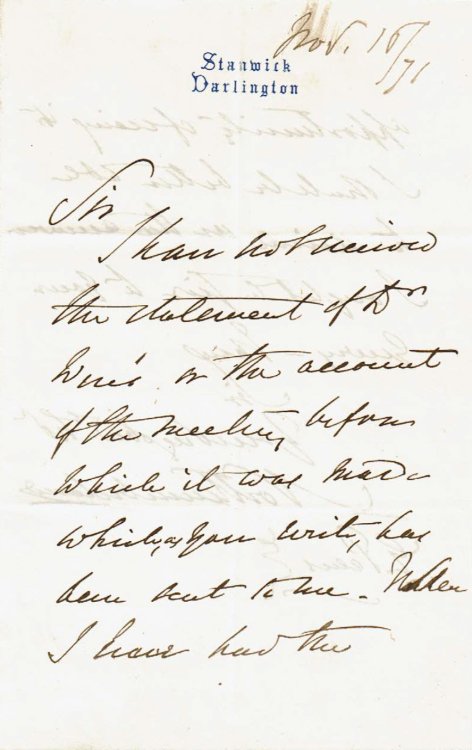 Nov. 16/71
Stanwick
Darlington
Sir
I have not received
the statement of Dr
or the account
of the meeting before
which it was made
which, as you write, has
been sent to me. When
I have had the